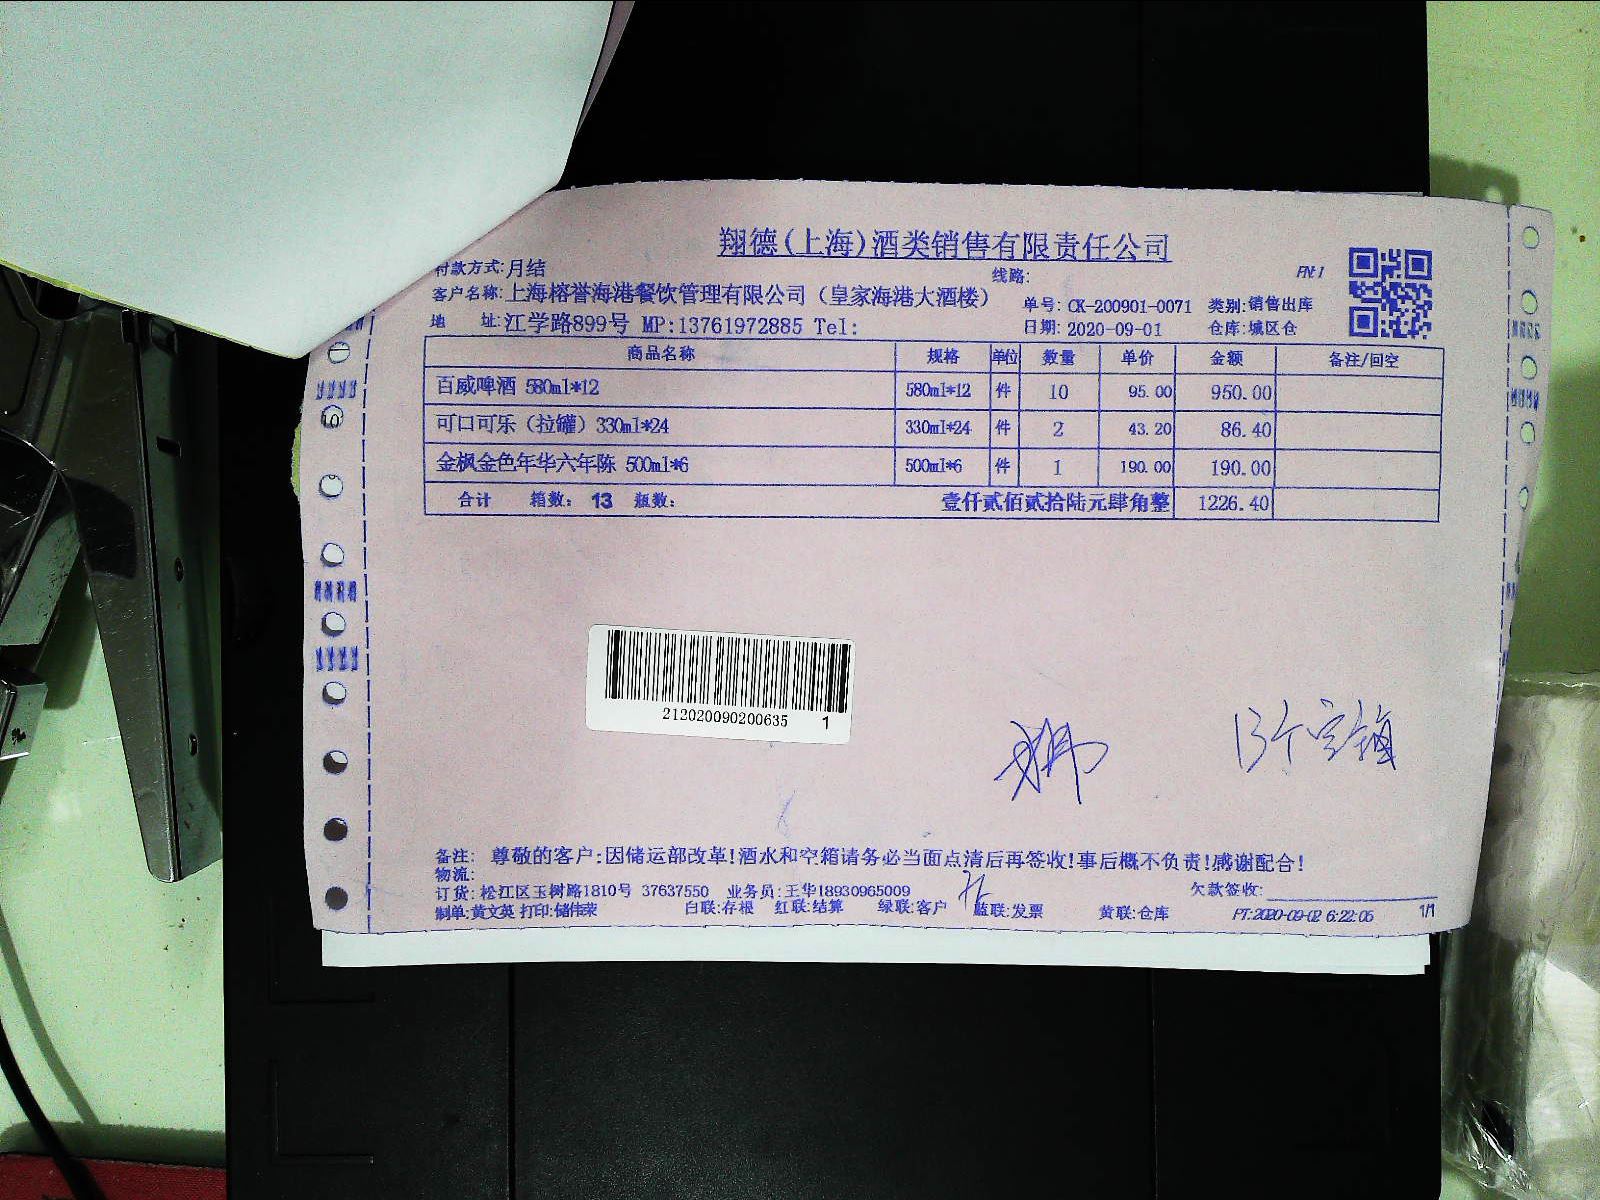 翔德(上海)酒类销售有限责任公司
付款方式:月结 线路: PN:1
客户名称:上海榕誉海港餐饮管理有限公司（皇家海港大酒楼） 单号: CK-200901-0071 类别:销售出库
地 址:江学路899号 MP:13761972885 Tel: 日期: 2020-09-01 仓库:城区仓
商品名称 规格 单位 数量 单价 金额 备注/回空
百威啤酒 580ml*12 580ml*12 件 10 95.00 950.00
可口可乐（拉罐）330ml*24 330ml*24 件 2 43.20 86.40
金枫金色年华六年陈 500ml*6 500ml*6 件 1 190.00 190.00
合计 箱数: 13 瓶数: 壹仟贰佰贰拾陆元肆角整 1226.40
212020090200635 1
备注: 尊敬的客户:因储运部改革!酒水和空箱请务必当面点清后再签收!事后概不负责!感谢配合!
物流:
订货:松江区玉树路1810号 37637550 业务员:王华18930965009 欠款签收:
制单:黄文英 打印:储伟荣 白联:存根 红联:结算 绿联:客户 蓝联:发票 黄联:仓库 PT:2020-09-02 6:22:06 1/1